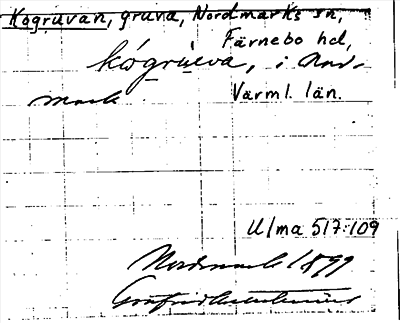 Kogruvan, gruva, Nordmarks sn,
Färnebo hd,
kógrùva, i Nord-
mark
Värml. län.
Ulma 517:109
Nordmark 1899